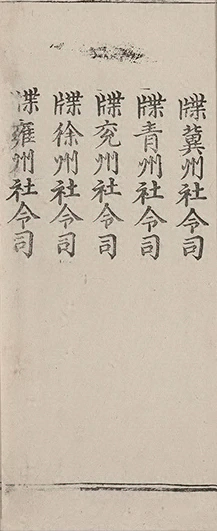 牒冀州社令司
牒青州社令司
牒兖州社令司
牒徐州社令司
牒雍州社令司